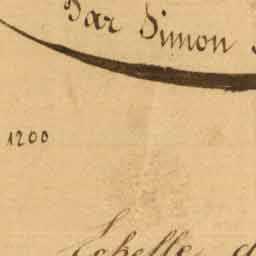 Par Simon
1200
Echelle d